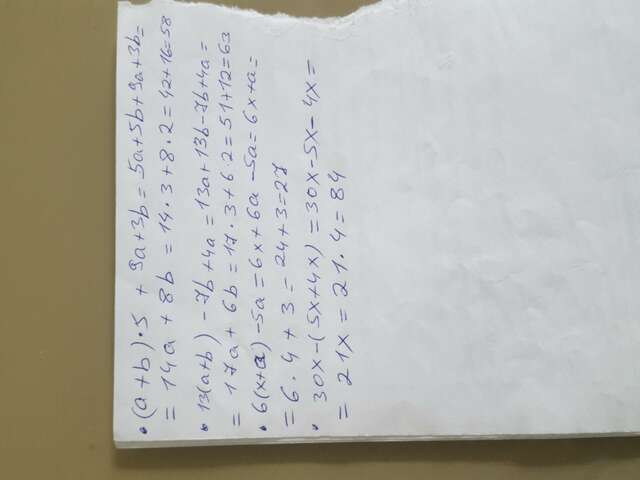 • (a+b)·5 + 9a+3b = 5a+5b+9a+3b=
= 14a + 8b = 14·3+8·2=42+16=58
• 13(a+b) -7b+4a = 13a+13b-7b+4a=
= 17a + 6b = 17·3+6·2=51+12=63
• 6(x+a) -5a = 6x+6a -5a = 6x+a=
= 6·4+3 = 24+3=27
• 30x-(5x+4x) =30x-5x-4x=
= 21x = 21·4=84